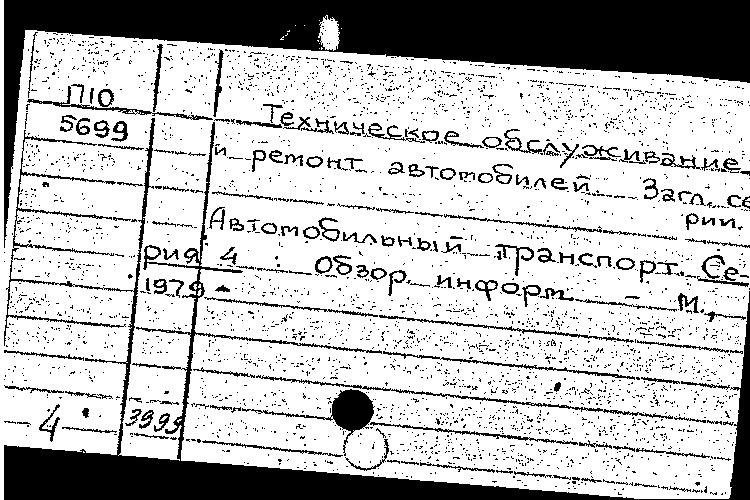 П10
5699
Техническое обслуживание
и ремонт автомобилей. Загл. се
рии.
Автомобильный транспорт. Се-
рия 4 : Обзор. информ. - М.,
1979 -
4 3999